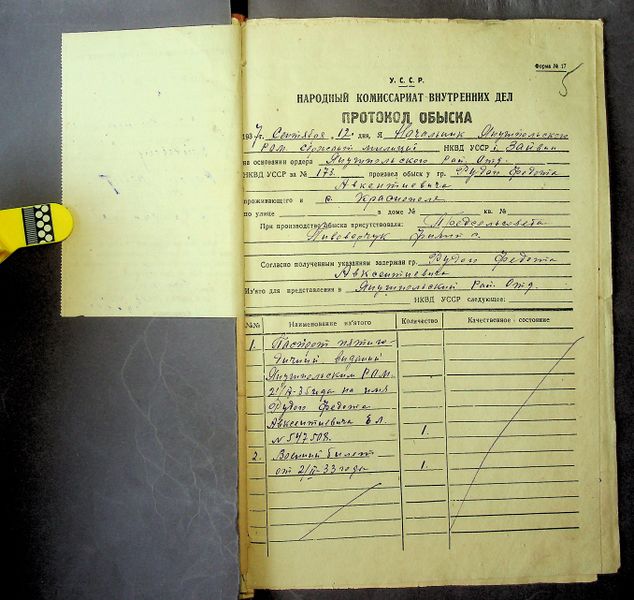 Форма № 17
5
У. С. С. Р.
НАРОДНЫЙ КОМИССАРИАТ ВНУТРЕННИХ ДЕЛ
ПРОТОКОЛ ОБЫСКА
1937 г. Сентября 12 дня, Я Начальник Янушпольского
РОМ. НКВД УССР Зайвий
на основании ордера Янушпольского Рай. Отд.
НКВД УССР за № 173. произвел обыск у гр. Рудой Федота
Авкентиевича
проживающего и с. Краснополь
по улице в доме № кв. №
При производстве обыска присутствовали: Предсельсовета
Пивоварчук Филип с.
Согласно полученным указаниям задержан гр. Рудой Федота
Авксентиевича
Из'ято для представления в Янушпольский Рай. Отд.
НКВД УССР следующее:
№№ Наименование из'ятого Количество Качественное состояние
1. Паспорт пятиго-
дичний виданий
Янушпольским РОМ.
21/IX-35 года на имя
Рудой Федота
Авксентиевича бл.
№ 547508. 1.
2. Военний билет
от 21/II-33 года 1.